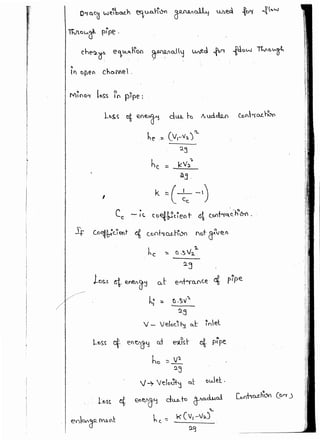 Darcy weibach equation generally used for flow
Through pipe.
chezy's equation generally used for flow Through
in open channel.
Minor loss in pipe :
Loss of energy due to sudden contraction
he = (V₁-V₂)²
2g
hc = kV₂²
2g
k = (1/Cc - 1)
Cc - is coefficient of contraction.
If coefficient of contraction not given
hc = 0.5V₂²
2g
Loss of energy at entrance of pipe
hi = 0.5V²
2g
V - Velocity at inlet
Loss of energy at exist of pipe
ho = V²
2g
V → Velocity at outlet.
Loss of energy due to gradual Contraction (or)
enlargement hc = k(V₁-V₂)²
2g